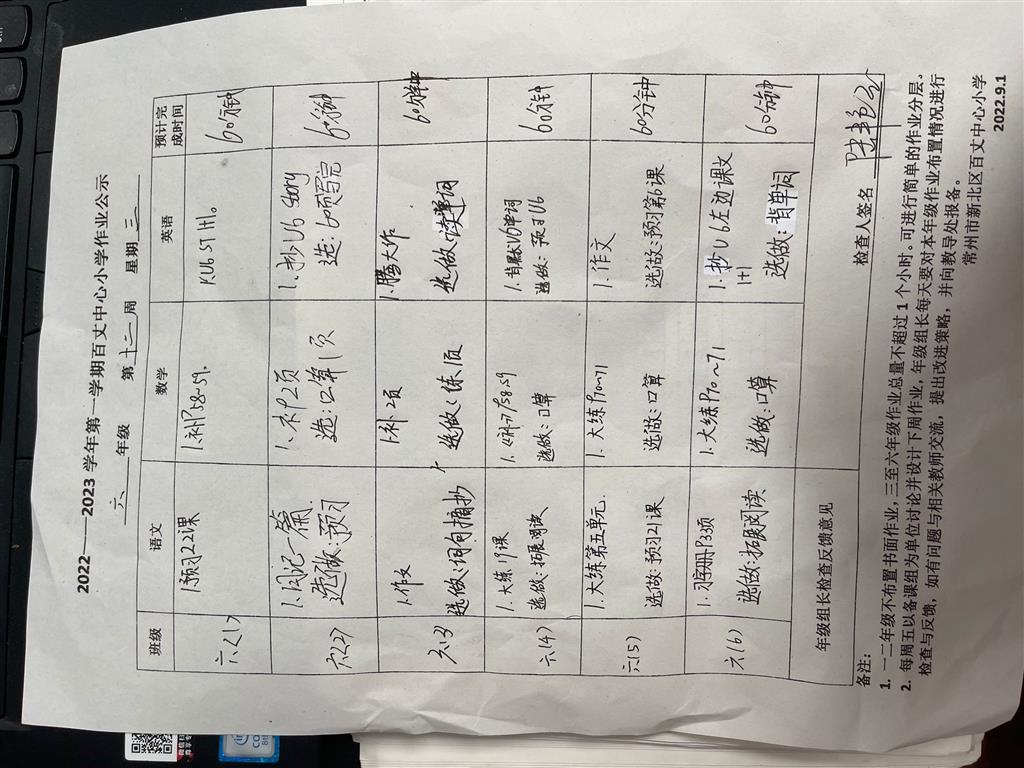 2022——2023 学年第一学期百丈中心小学作业公示
六 年级 第 十二 周 星期 三
班级 语文 数学 英语 预计完成时间
六(1) 1.预习22课 1.补P58-59. 60分钟
六(2) 1.周记一篇 1.补P2页 1.抄U6 story 60分钟
选做:预习 选:口算1页 选:60页写完
六(3) 1.作文 1.补2页 60分钟
选做:词句摘抄 选做:练1页 选做:读单词
六(4) 1.大练19课 60分钟
选做:拓展阅读 选做:口算 选做:预习U6
六(5) 1.大练第五单元. 1.大练P70~71 1.作文 60分钟
选做:预习21课 选做:口算 选做:预习第6课
六(6) 1.习字册P33页 1.大练P70~71 1.抄U6左边课文 60分钟
1+1
选做:拓展阅读 选做:口算 选做:背单词
年级组长检查反馈意见 检查人签名
备注:
1. 一二年级不布置书面作业,三至六年级作业总量不超过1个小时。可进行简单的作业分层。
2. 每周五以备课组为单位讨论并设计下周作业,年级组长每天要对本年级作业布置情况进行
检查与反馈,如有问题与相关教师交流,提出改进策略,并向教导处报备。
常州市新北区百丈中心小学
2022.9.1